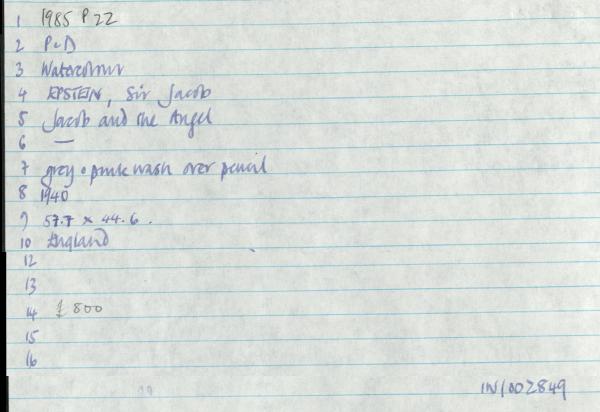 1 1985 P 22
2 P&D
3 Watercolour
4 EPSTEIN, Sir Jacob
5 Jacob and the Angel
6 —
7 grey + pink wash over pencil
8 1940
9 57.7 x 44.6.
10 England
12
13
14 £800
15
16
IN/002849